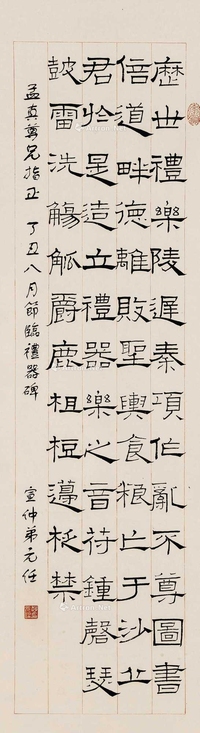 歷世禮樂陵遲秦項作亂不尊圖書
倍道畔德離敗聖輿食糧亡于沙丘
君於是造立禮器樂之音符鍾磬瑟
鼓雷洗觴觚爵鹿柤梪籩柉禁
孟真尊兄指正 丁丑八月節臨禮器碑 宣仲弟元任